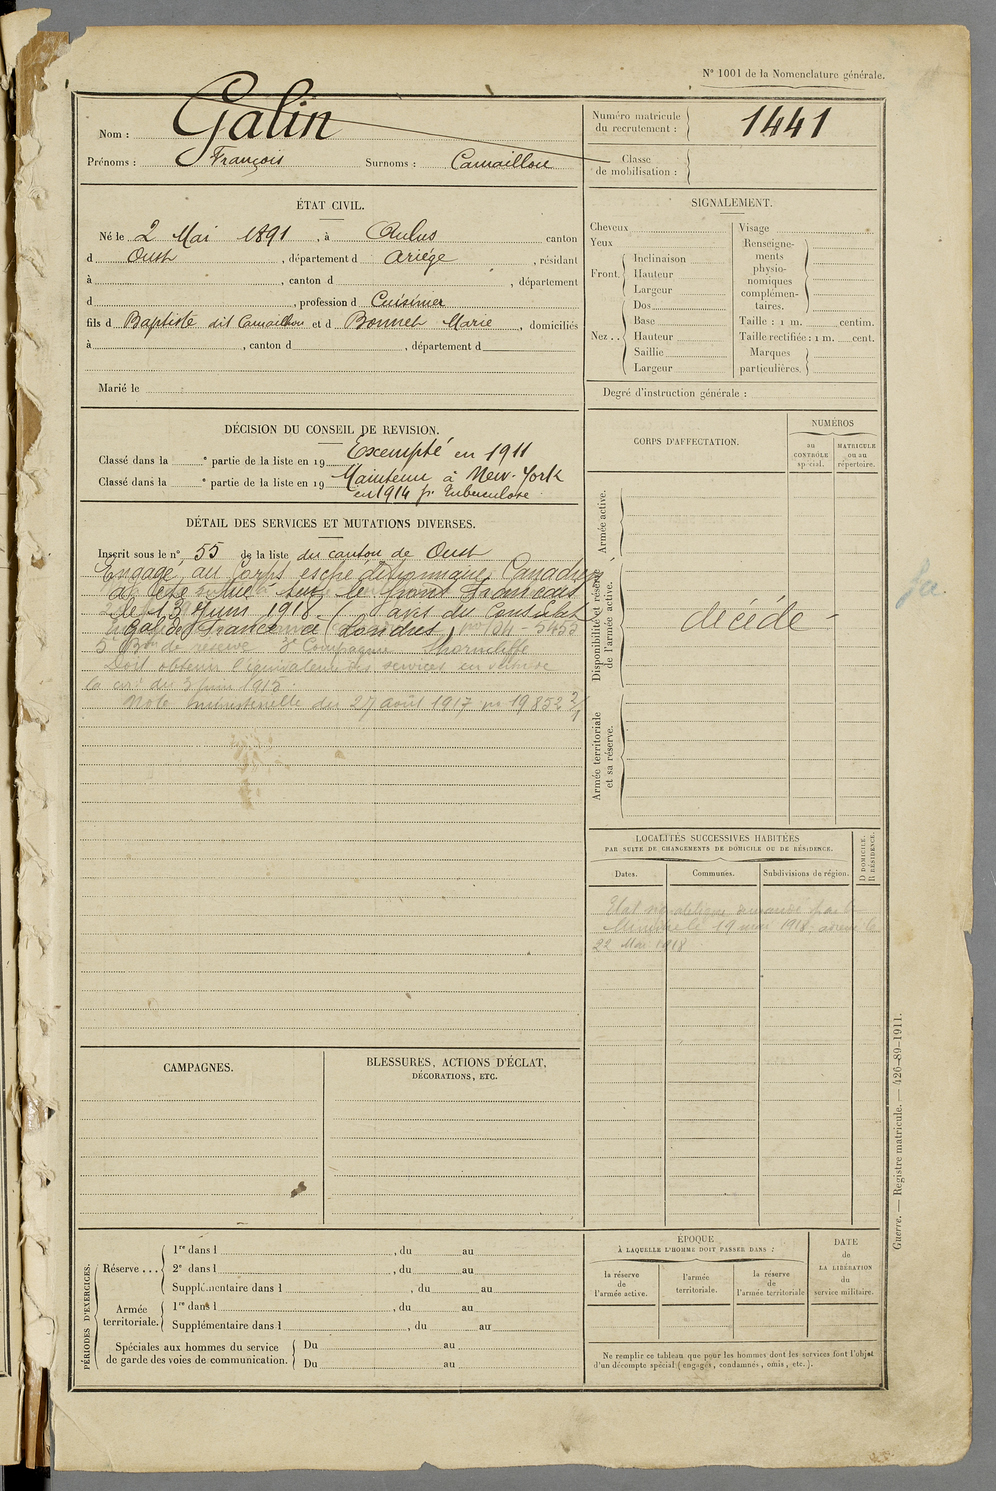 N° 1001 de la Nomenclature générale.
Nom : Galin
Prénoms : François Surnoms : Camaillou
Numéro matricule du recrutement : 1441
Classe de mobilisation :
ÉTAT CIVIL.
Né le 2 Mai 1891, à Aulus canton
d Oust, département d Ariège, résidant
à , canton d , département
d , profession d Cuisinier
fils d Baptiste dit Camaillou et d Bonnet Marie, domiciliés
à , canton d , département d
Marié le
SIGNALEMENT.
Cheveux
Yeux
Front. Inclinaison
Hauteur
Largeur
Nez .. Dos
Base
Hauteur
Saillie
Largeur
Visage
Renseigne-
ments
physio-
nomiques
complémen-
taires.
Taille : 1 m. centim.
Taille rectifiée : 1 m. cent.
Marques
particulières.
Degré d'instruction générale :
DÉCISION DU CONSEIL DE REVISION.
Classé dans la e partie de la liste en 19 Exempté en 1911
Classé dans la e partie de la liste en 19 Maintenu à New-York
en 1914 pr Tuberculose
DÉTAIL DES SERVICES ET MUTATIONS DIVERSES.
Inscrit sous le n° 55 de la liste du canton de Oust
Engagé au Corps expéditionnaire Canadien
a été tué sur le front Français
le 13 Juin 1918 (avis du Consulat
Gal de France à Londres) 5453
5 Bon de réserve 3e Compagnie Thorncliffe
Doit obtenir l'équivalence des services en
la cire du 3 Juin 1915.
Note ministérielle du 27 août 1917 no 19852 2/1
CORPS D'AFFECTATION.
NUMÉROS
au CONTRÔLE spécial.
MATRICULE ou au répertoire.
Armée active.
Disponibilité et réserve de l'armée active.
décédé -
Armée territoriale et sa réserve.
LOCALITÉS SUCCESSIVES HABITÉES
PAR SUITE DE CHANGEMENTS DE DOMICILE OU DE RÉSIDENCE.
Dates.
Communes.
Subdivisions de région.
D DOMICILE.
R RÉSIDENCE.
Etat demandé par le
Ministre le 19 mai 1918 adressé le
22 Mai 1918
CAMPAGNES.
BLESSURES, ACTIONS D'ÉCLAT,
DÉCORATIONS, ETC.
PÉRIODES D'EXERCICES.
Réserve ... 1re dans l , du au
2e dans l , du au
Supplémentaire dans l , du au
Armée territoriale. 1re dans l , du au
Supplémentaire dans l , du au
Spéciales aux hommes du service
de garde des voies de communication.
Du au
Du au
ÉPOQUE
À LAQUELLE L'HOMME DOIT PASSER DANS :
la réserve de l'armée active.
l'armée territoriale.
la réserve de l'armée territoriale
DATE de LA LIBÉRATION du service militaire.
Ne remplir ce tableau que pour les hommes dont les services font l'objet
d'un décompte spécial (engagés, condamnés, omis, etc.).
Guerre. — Registre matricule. — 426-89-1911.